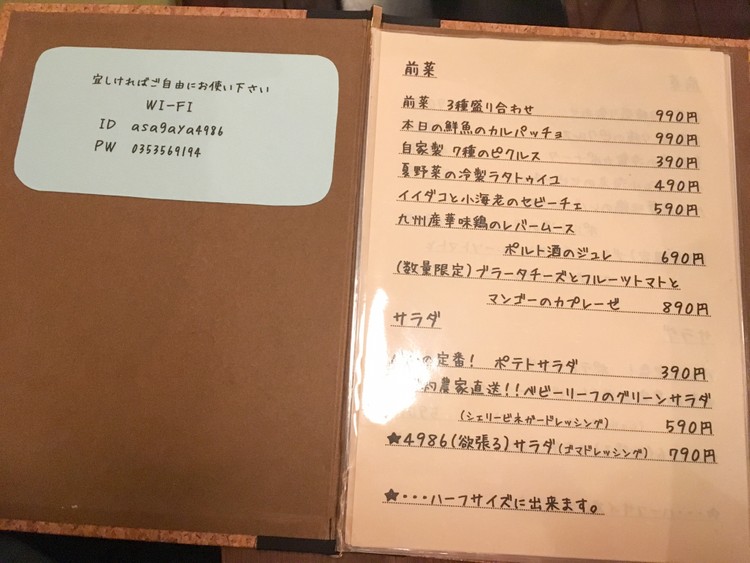 宜しければご自由にお使い下さい
WI-FI
ID asagaya4986
PW 0353569194
前菜
前菜 3種盛り合わせ 990円
本日の鮮魚のカルパッチョ 990円
自家製 7種のピクルス 390円
夏野菜の冷製ラタトゥイユ 490円
イイダコと小海老のセビーチェ 590円
九州産華味鶏のレバームース
ポルト酒のジュレ 690円
(数量限定)ブラータチーズとフルーツトマトと
マンゴーのカプレーゼ 890円
サラダ
の定番! ポテトサラダ 390円
農家直送!!ベビーリーフのグリーンサラダ
(シェリービネガードレッシング) 590円
★4986(欲張る)サラダ(ゴマドレッシング) 790円
★・・・ハーフサイズに出来ます。